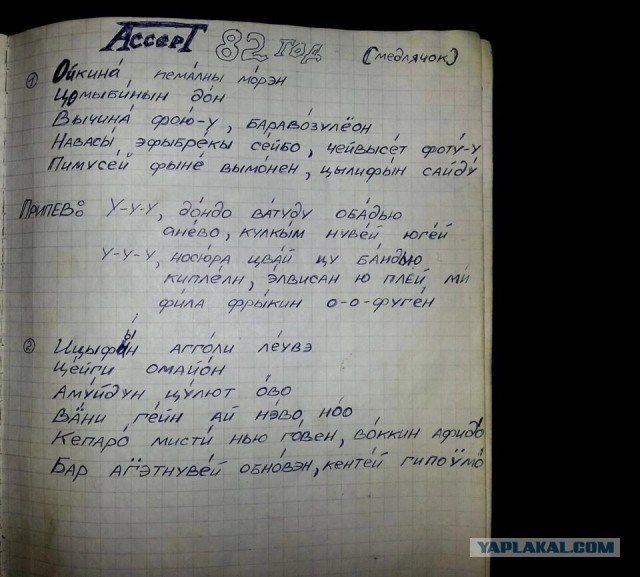 Accept 82 год (медлячок)
① Ойкина́, пема́лны мо́рэн
Цомыби́нын до́н
Вычина́ фою́-у, барава́зулёон
Навасы́, эфыбре́кы се́йбо, чейвысе́т фоту́-у
Пимусе́й фыне́ вымо́нен, цылифы́н сайду́
Припев: У-у-у, до́ндо ва́туду оба́дью
ане́во, кулкы́м нуве́й юге́й
У-у-у, носю́ра цва́й цу ба́ндью
кипле́лн, э́лвисан ю пле́й ми́
фи́ла фры́кин о-о-фуге́н
② Ицыфы́н агго́ли ле́увэ
Це́йги омайо́н
Аму́йдун цу́лют о́во
Ва́ни ге́йн ай нэ́во, но́о
Кепаро́ мисти́ нью го́вен, во́ккин афидо́
Бар агэтнуве́й обно́вэн, кенте́й гипоумо́
YAPLAKAL.COM